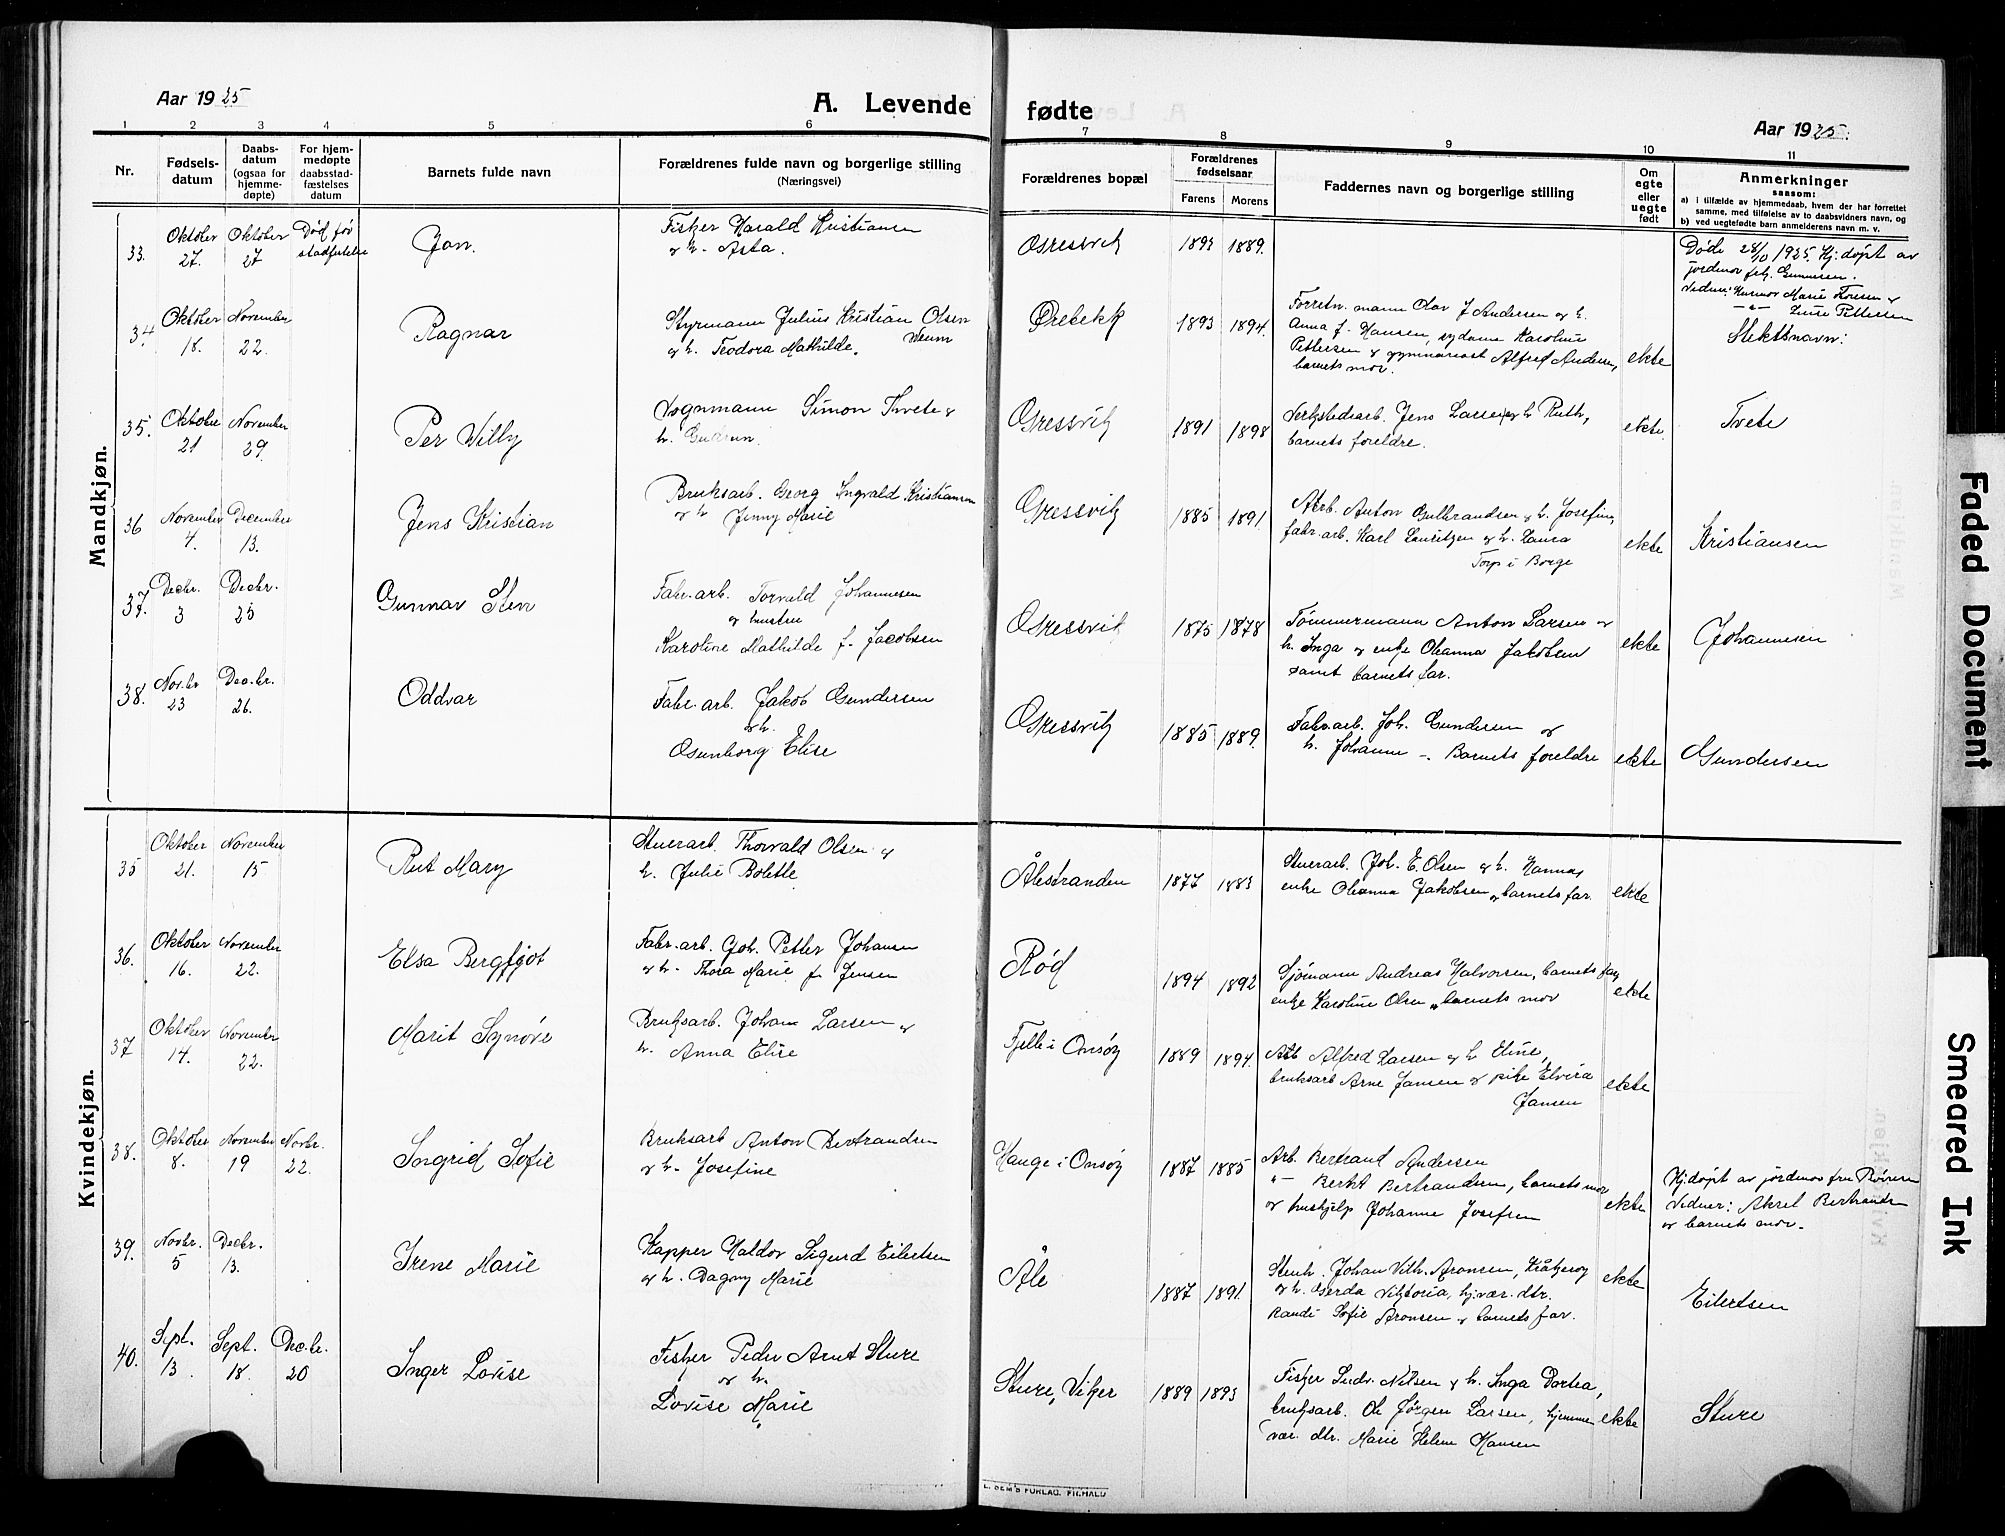 Aar 1925
A. Levende
fødte
Aar 1925.
1 2 3 4 5 6 7 8 9 10 11
Nr.
Fødsels-
datum
Daabs-
datum
(ogsaa for
hjemme-
døpte)
For hjem-
medøpte
daabsstad-
fæstelses
datum
Barnets fulde navn
Forældrenes fulde navn og borgerlige stilling
(Næringsvei)
Forældrenes bopæl
Forældrenes
fødselsaar
Farens Morens
Faddernes navn og borgerlige stilling
Om
egte
eller
uegte
født
Anmerkninger
saasom:
a) i tilfælde av hjemmedaab, hvem der har forrettet
samme, med tilføielse av to daabsvidners navn, og
b) ved uegtefødt barn anmelderens navn m. v.
Mandkjøn.
33.
Oktober
27.
Oktober
27
Død før
Jon.
Fisker Harald Kristiansen
og h. Asta.
Gressvik
1893 1889.
Døde 28/10 1925. Hj.døpt av
jordmor frk. Gunnersen.
34
Oktober
18.
November
22.
Ragnar
Styrmann Julius Kristian Olsen
og h. Teodora Mathilde.
Ørebekk
1893 1894.
Forretn. mann Olav J Andersen og h.
Anna f. Hansen, sydame Karoline
Pettersen og gymnasiast Alfred Andersen,
barnets mor.
ekte
Slektsnavn:
35.
Oktober
21
November
29.
Per Willy
Vognmann Simon Tvete og
h. Gudrun.
Gressvik
1891 1898
Verkstedsarb. Jens Larsen og h. Ruth,
barnets foreldre.
ekte.
Tvete
36
November
4.
Decembre
13.
Jens Kristian
Bruksarb. Georg Ingvald Kristiansen
og h. Jenny Marie
Gressvik
1885 1891
Arb. Anton Gulbrandsen og h. Josefine,
fabr.arb. Karl Lauritzen og h. Laura
Torp i Borge
ekte
Kristiansen
37.
Decbr.
3
Decbr.
25
Gunnar Sten
Fabr.arb. Torvald Johannesen
og hustru
Karoline Mathilde f. Jacobsen
Gressvik
1875 1878
Tømmermann Anton Larsen og
h. Inga og enke Oleanna Jakobsen
samt barnets far.
ekte
Johannesen
38.
Novbr
23
Decbr.
26.
Oddvar
Fabr.arb. Jakob Gundersen
og h.
Gunborg Elise
Gressvik
1885 1889.
Fabr.arb. Joh. Gundersen og
h. Johanne -. Barnets foreldre
ekte
Gundersen
Kvindekjøn.
35
Oktober
21.
November
15
Rut Mary
Stuerarb. Thorvald Olsen og
h. Julie Bolette
Ålestranden
1877 1883
Stuerarb. Joh. E. Olsen og h. Hanna,
enke Oleanna Jakobsen og barnets far.
ekte
36.
Oktober
16.
November
22.
Elsa Bergfjot
Fabr.arb. Joh. Petter Johansen
og h. Thora Marie f. Jensen
Rød
1894 1892
Sjømann Andreas Halvorsen, barnets far,
enke Karoline Olsen, barnets mor
ekte
37
Oktober
14.
November
22.
Marit Synøve
Bruksarb. Johan Larsen og
h. Anna Elise
Fjelle i Onsøy
1889 1894.
Arb Alfred Larsen og h Eline,
bruksarb Arne Jansen og pike Elvira
Jansen
ekte
38.
Oktober
8.
November
19
Novbr.
22.
Ingrid Sofie
Bruksarb Anton Bertrandsen
og h. Josefine
Hauge i Onsøy
1887 1885
Arb. Bertrand Andersen
" - Berht Bertrandsen, barnets mor
og hushjelp Johanne Josefsen
ekte
Hj.døpt av jordmor fru Børresen
Vidner: Aksel Bertrandsen
og barnets mor.
39.
Novbr.
5
Decbr.
13.
Irene Marie
Kapper Haldor Sigurd Eilertsen
og h. Dagny Marie
Åle
1887 1891.
Stenh. Johan Vilh. Aronsen, Kråkerøy
og h. Gerda Viktoria, hj.vær. dtr.
Randi Sofie Aronsen og barnets far.
ekte
Eilertsen
40.
Sept.
13
Sept.
18.
Decbr.
20
Inger Lovise
Fisker Peder Arnt Sture
og h.
Lovise Marie
Sture, Viker
1889 1893
Fisker Ludv. Nilsen og h. Inga Dortea,
bruksarb. Ole Jørgen Larsen, hjemme
vær. dtr. Marie Helene Hansen
ekte
Sture
Faded Document
Smeared Ink